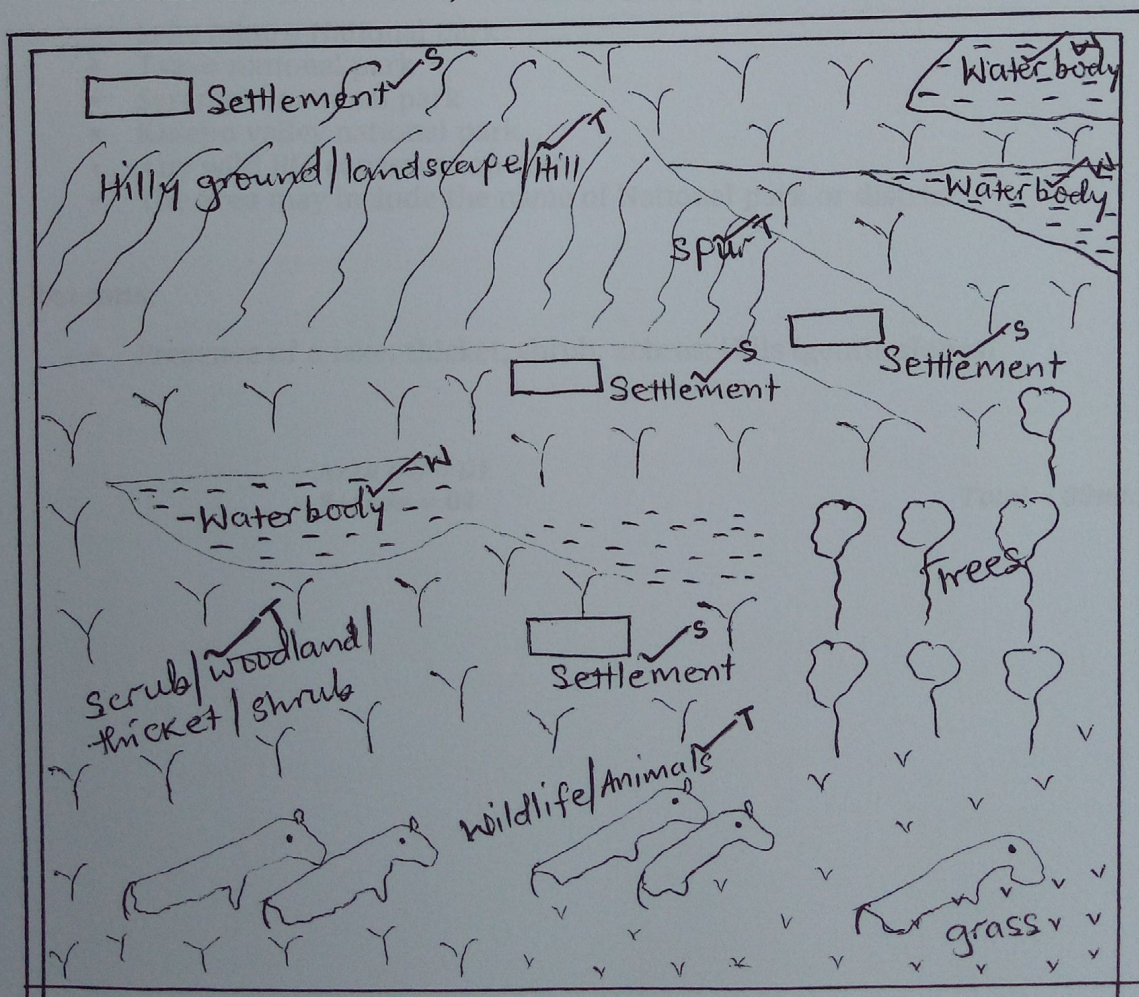 Settlement S
Water body W
Hilly ground/landscape/Hill T
Water body W
Spur T
Settlement S
Settlement S
Waterbody W
Trees
Scrub/woodland/ T
thicket/shrub
Settlement S
Wildlife/Animals T
grass